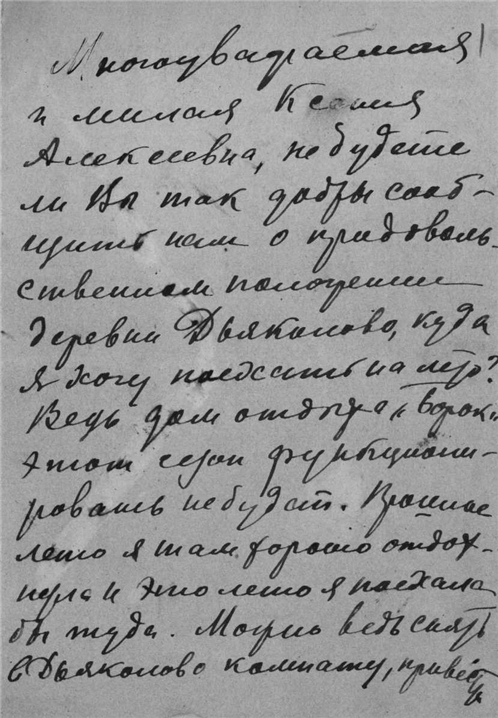 Многоуважаемая
и милая Ксения
Алексеевна, не будете
ли Вы так добры сооб-
щить нам о продоволь-
ственном положении
деревни Дьяконово, куда
я хочу поехать на лето?
Ведь дом отдыха „Борок"
этот сезон функциони-
ровать не будет. Прошлое
лето я там хорошо отдох-
нула и это лето я поехала
бы туда. Можно ведь снять
в Дьяконово комнату, привез